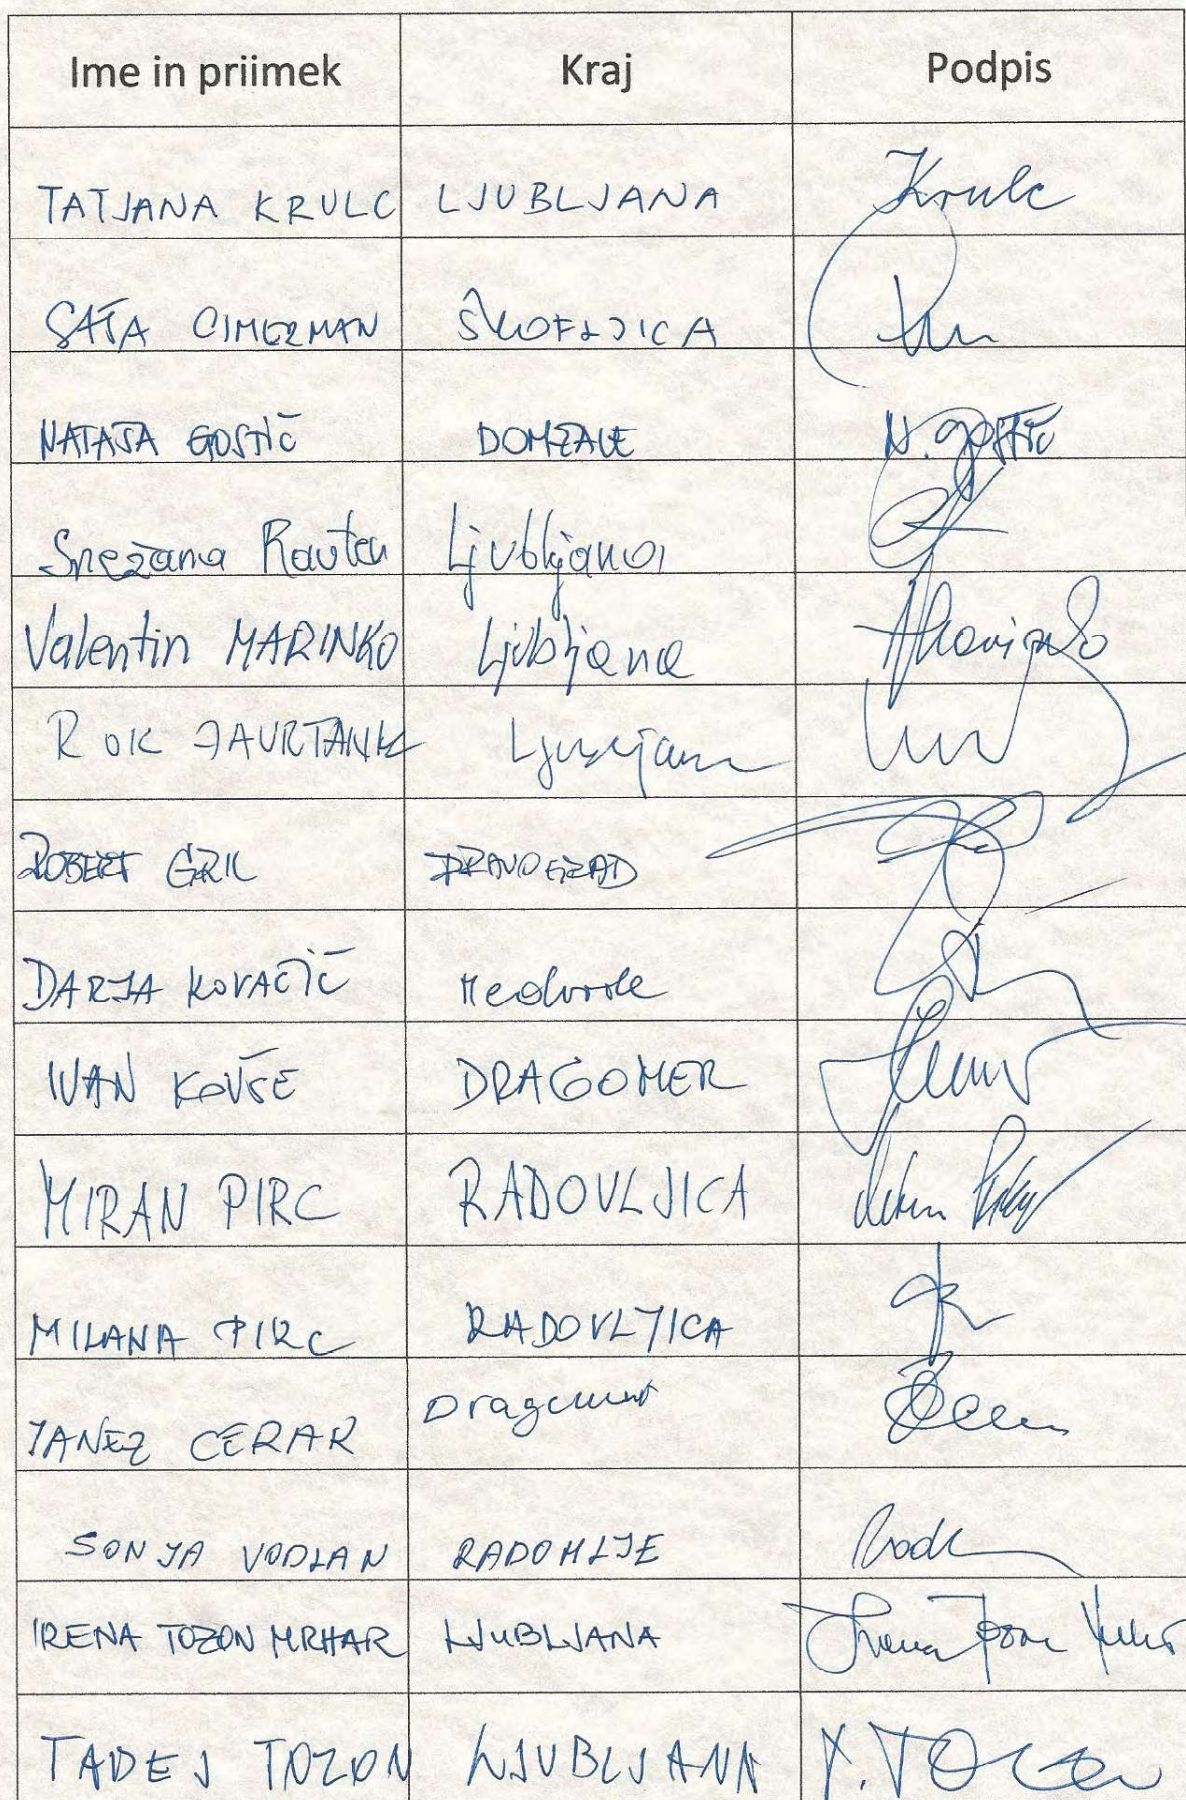 Ime in priimek Kraj Podpis
TATJANA KRULC LJUBLJANA Krulc
SAŠA CIMERMAN ŠKOFLJICA
NATAŠA GOSTIČ DOMŽALE N. Gostič
Snežana Rautar Ljubljana
Valentin MARINKO Ljubljana Marinko
ROK JAVRTANK Ljubljana
ROBERT GRIL DRAVOGRAD
DARJA KOVAČIČ Medvode
IVAN KOVŠE DRAGOMER
MIRAN PIRC RADOVLJICA
MILANA PIRC RADOVLJICA
JANEZ CERAR Dragomer
SONJA VODLAN RADOMLJE
IRENA TOZON MRHAR LJUBLJANA Irena Tozon Mrhar
TADEJ TOZON LJUBLJANA